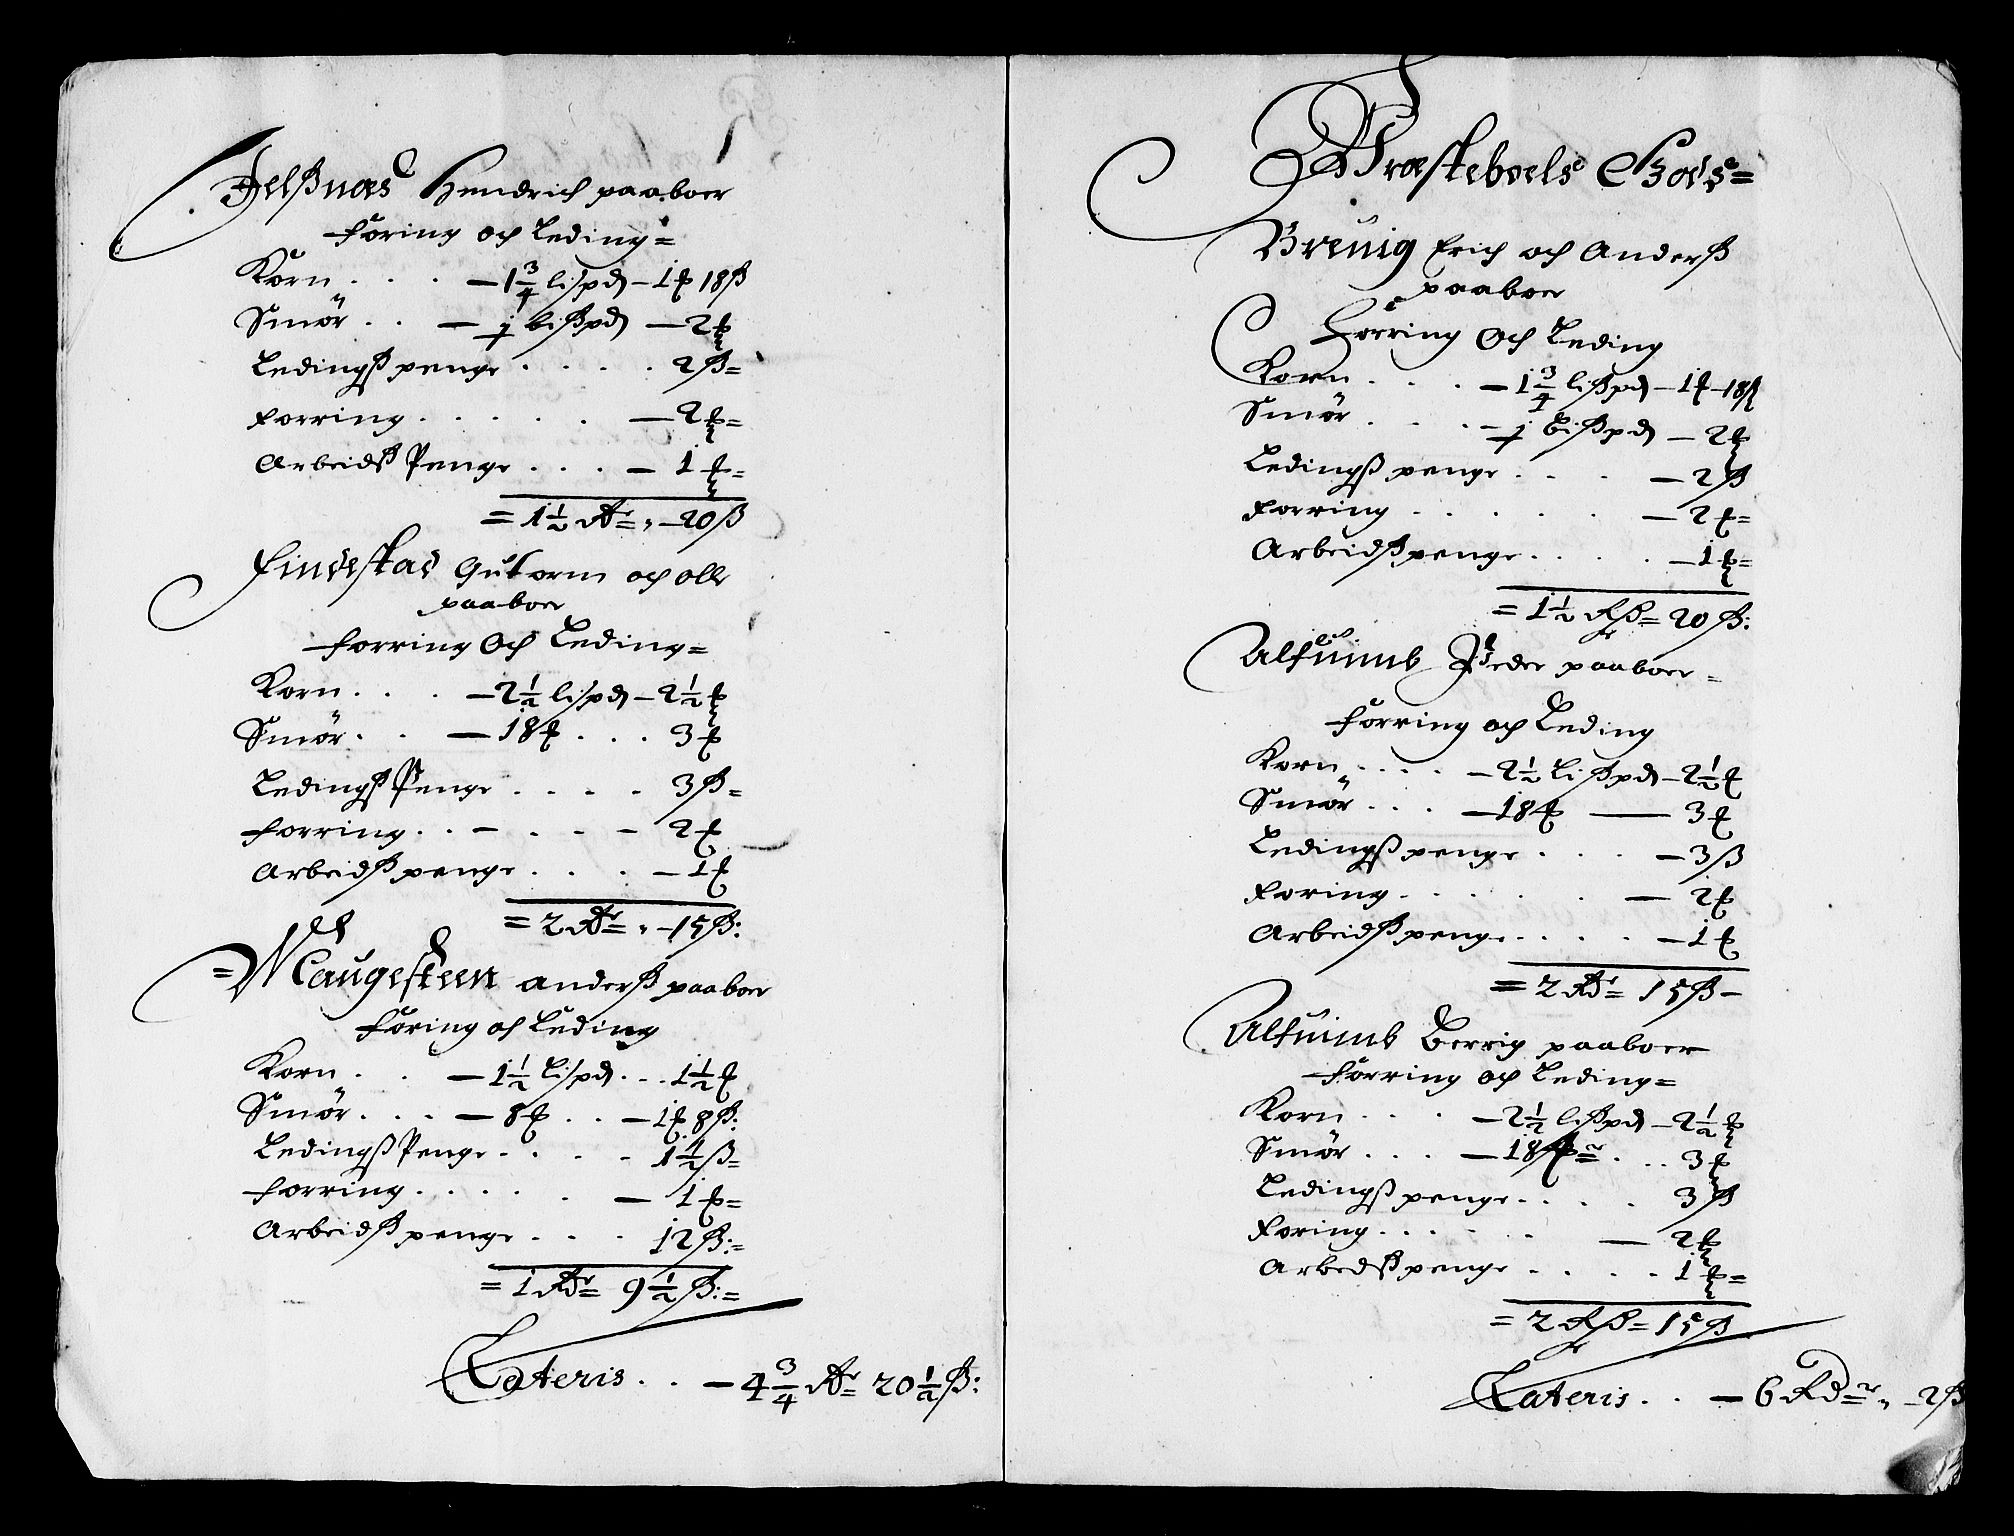 Jelßnæs Hendrich paaboer
Foring och Leding=
Korn . . . — 1 3/4 lispd – 1 ℔ 18 ß
Smør . . — j bißpd — 2 ℔
Ledingß penge . . . . 2 ß=
Forring . . . . . — 2 ℔=
Arbeidß Penge . . . — 1 ℔=
= 1 1/2 Rdr= „ — 20 ß
Findestad Gutorm och olle
paaboer
Forring Och Leding=
Korn . . . — 2 1/2 lispd – 2 1/2 ℔
Smør . . — 18 ℔ . . . 3 ℔
Ledingß Penge . . . . 3 ß=
Forring . . – . . . – 2 ℔
Arbeidß penge . . . – 1 ℔
= 2 Rdr= „ – 15 ß:
= Maugesteen anderß paaboer
Foring och Leding
Korn . . — 1 1/2 Lispd . . . 1 1/2 ℔
Smør . . . — 8 ℔ . . — 1 ℔ 8 ß:
Ledingß Penge . . . . 1 1/2 ß=
Forring . . . . . — 1 ℔=
Arbeidß penge . . . 12 ß:=
= 1 Rdr= 9 1/2 ß:=
Lateris . . — 4 3/4 Rdr= 20 1/2 ß:
Træskeboels Godß=
Breuig Erich och Anderß
paaboer
Forring Och Leding
Korn . . . — 1 3/4 lißpd – 1 ℔ – 18 ß
Smør . . . . — j Bißpd — 2 ℔
Ledingß penge . . . — 2 ß
Forring . . . . . — 2 ℔=
Arbeidß penge . . . . — 1 ℔=
= 1 1/2 Rdr= 20 ß:
Alfuimb Peder paaboer
Forring och Leding
Korn . . . . — 2 1/2 Lißpd – 2 1/2 ℔
Smør . . . — 18 ℔ — 3 ℔
Ledingß penge . . . — 3 ß
Foring . . . . . — 2 ℔
Arbeidß penge . . . . — 1 ℔
= 2 Rdr= 15 ß –
Alfuimb Berrig paaboer
Forring och Leding=
Korn . . . — 2 1/2 lißpd – 2 1/2 ℔
Smør . . . — 18 ℔ . . . 3 ℔
Ledingß penge . . . . 3 ß
Foring . . . . . — 2 ℔
Arbedß penge . . . . 1 ℔=
= 2 Rdr= 15 ß
Lateris . . — 6 Rdr= „ – 2 ß